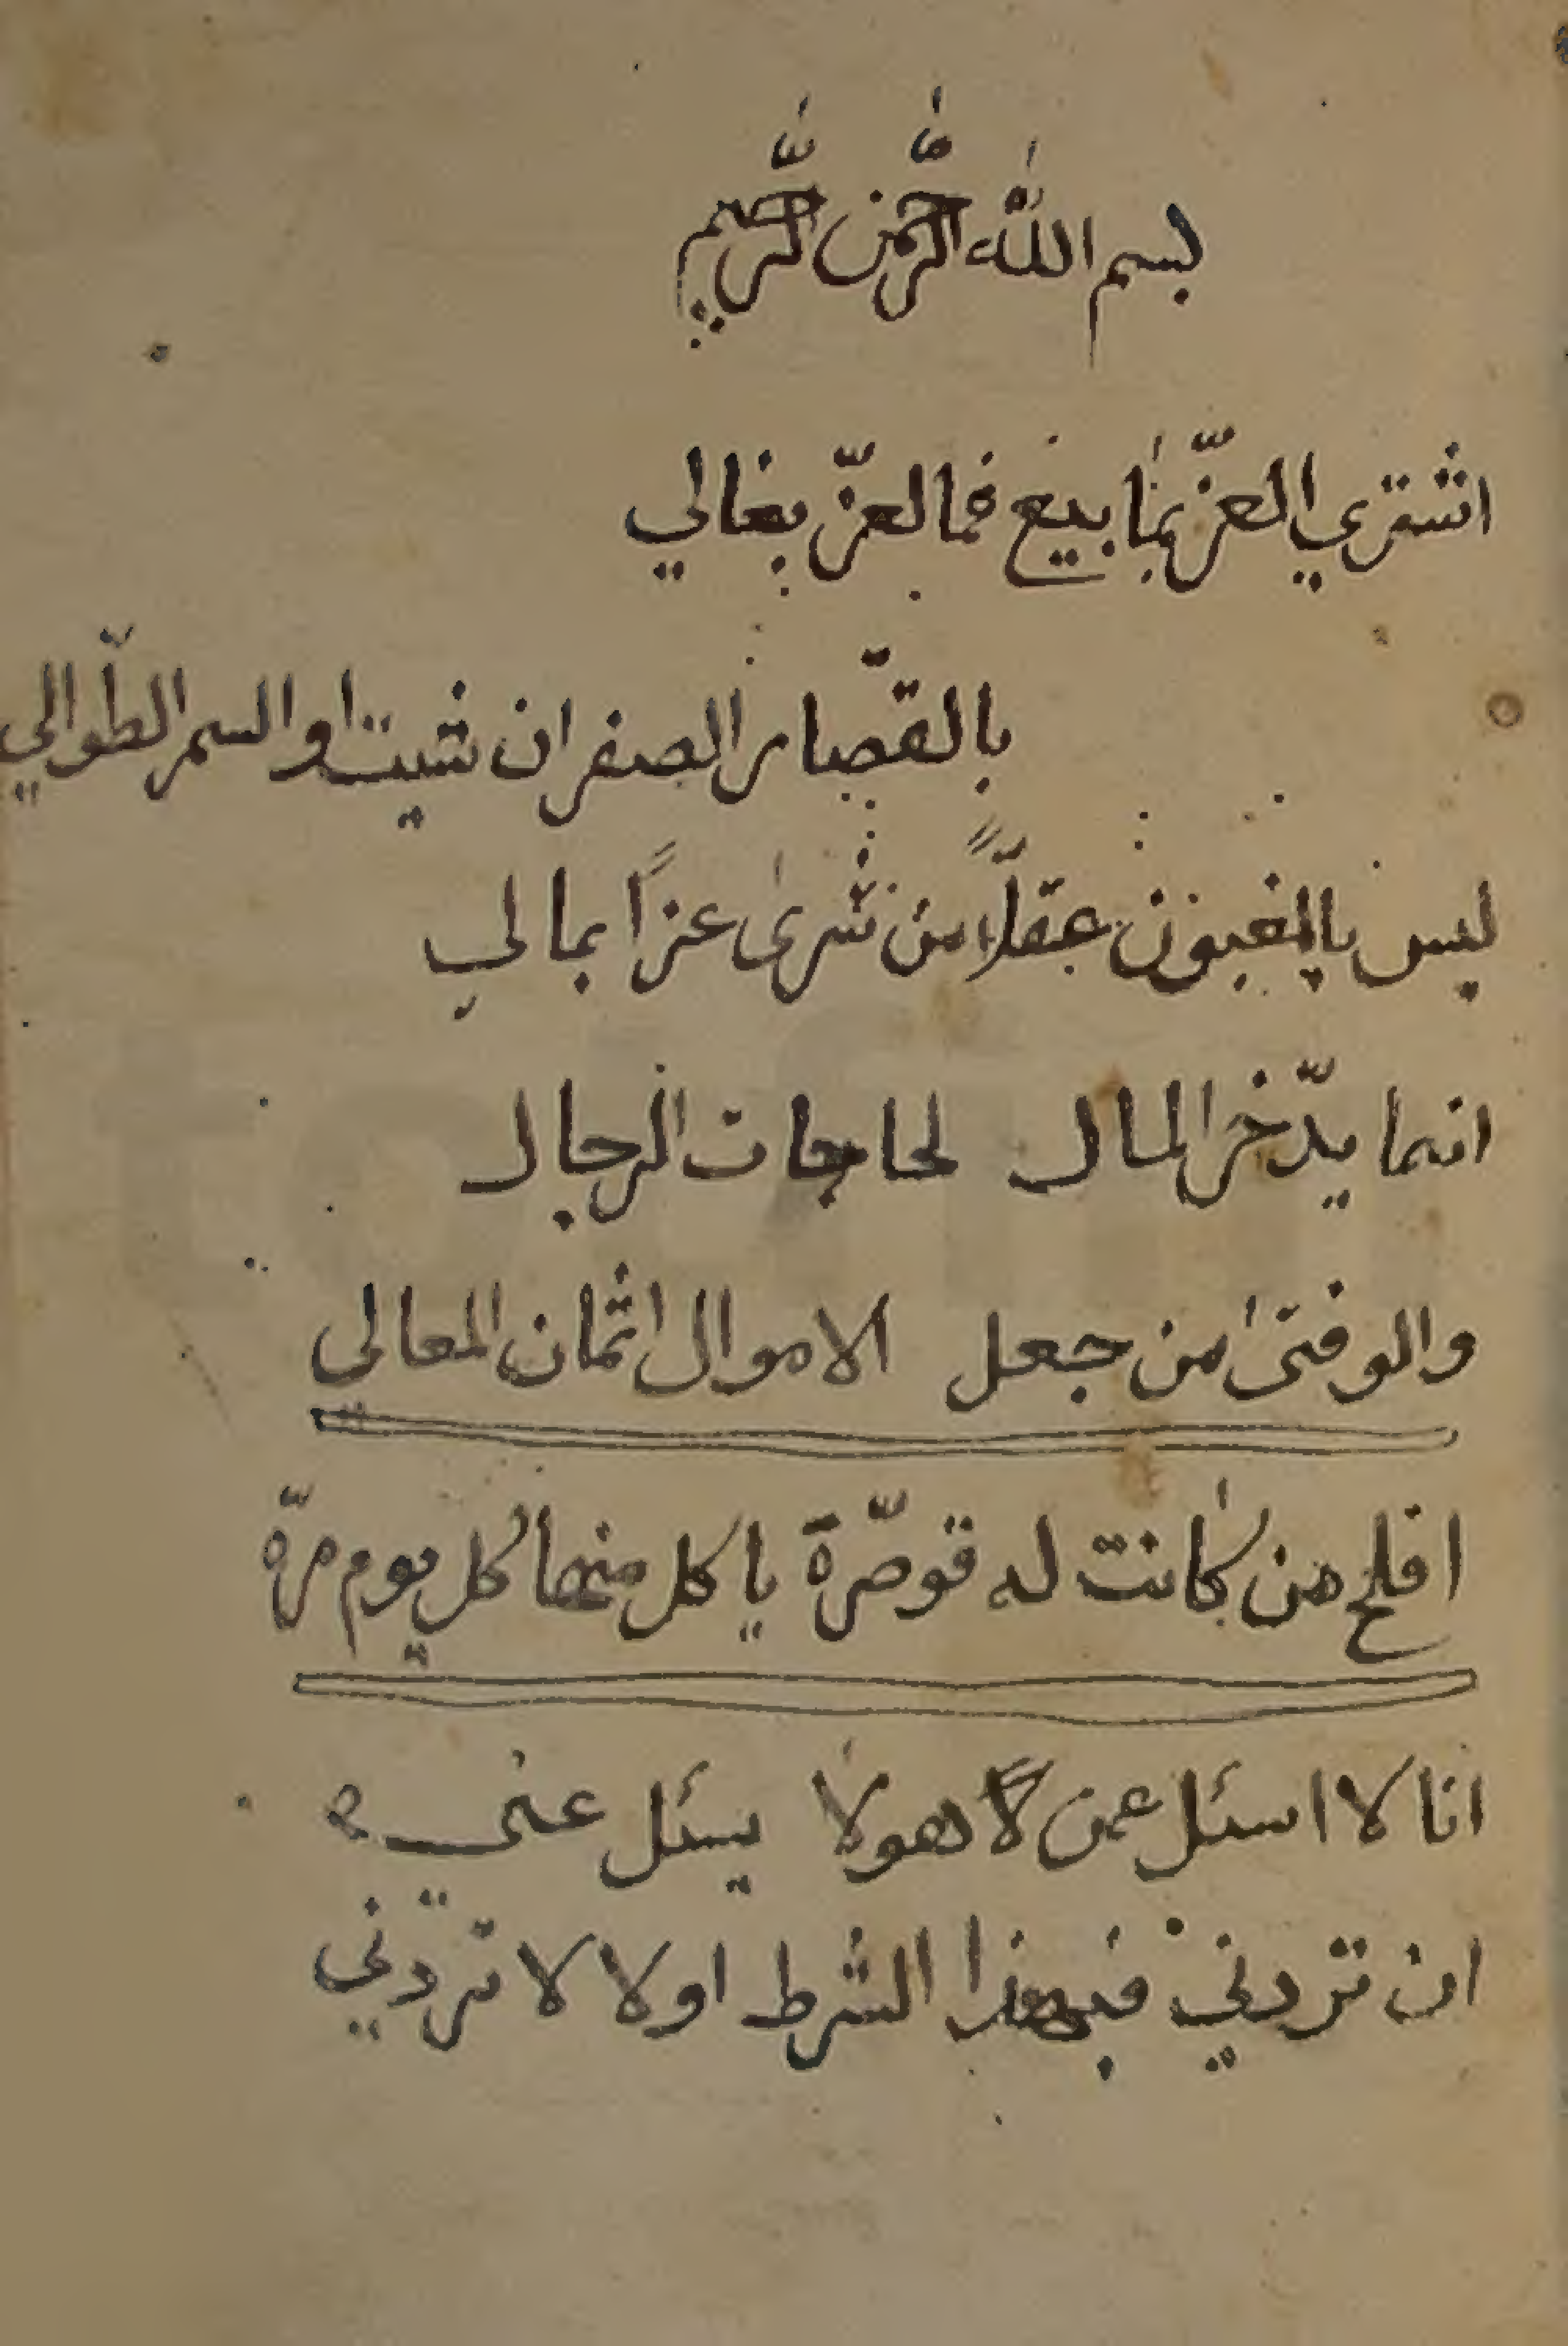 بسم الله الرّحمٰن الرّحيم
اشتري العزّ بما بيع فما لعزّ بغالي
بالقصّار الصفر ان شيت او السمر الطّوالي
ليس بالمغبون عقلًّا من شرىٰ عزاً بمالي
انما يدّخر المال لحاجات الرجال
والوفتىٰ من جعل الاموال اثمان المعالي
افلح من كانت له قوصّرة ياكل منها كل يوم مرّه
انا لا اسئل عمن لا هو لا يسئل عني
ان تردني فبهذا الشرط اولا لا تردني